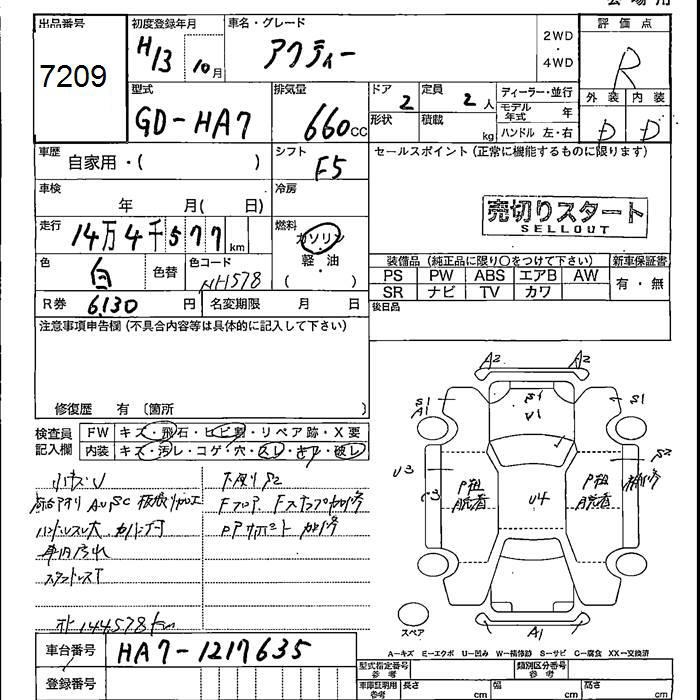 会場用
出品番号 初度登録年月 車名・グレード 2WD・4WD 評価点
7209 H13 10月 アクティー R
型式 排気量 ドア 2 定員 2人 ディーラー・並行 外装 内装
GD-HA7 660cc 形状 積載 kg モデル年式 年 D D
ハンドル 左・右
車歴 自家用・( ) シフト F5 セールスポイント(正常に機能するものに限ります)
車検 年 月( 日) 冷房
売切りスタート
SELLOUT
走行 14万4千577km 燃料 ガソリン 軽・油 ( )
色 白 色替 色コード NH578
装備品(純正品に限り○をつけて下さい) 新車保証書
PS PW ABS エアB AW 有・無
SR ナビ TV カワ
R券 6,130円 名変期限 月 日 後日品
注意事項申告欄(不具合内容等は具体的に記入して下さい)
修復歴 有〔箇所 〕
検査員記入欄 FW キズ・飛石・ヒビ割・リペア跡・X要
内装 キズ・汚レ・コゲ・穴・スレ・ネジ・破レ
小キズU 下廻りS2
ハンドルスレ大
車内汚れ
144,578km
A2 A2
S1 A1 S1 U1 S1
U3 S2
U4
A1
スペア
A-キズ E-エクボ U-凹み W-補修跡 S-サビ C-腐食 XX-交換済
車台番号 HA7-1217635
登録番号
型式指定番号 参考 類別区分番号 参考
車庫証明用 参考 長さ cm 幅 cm 高さ cm